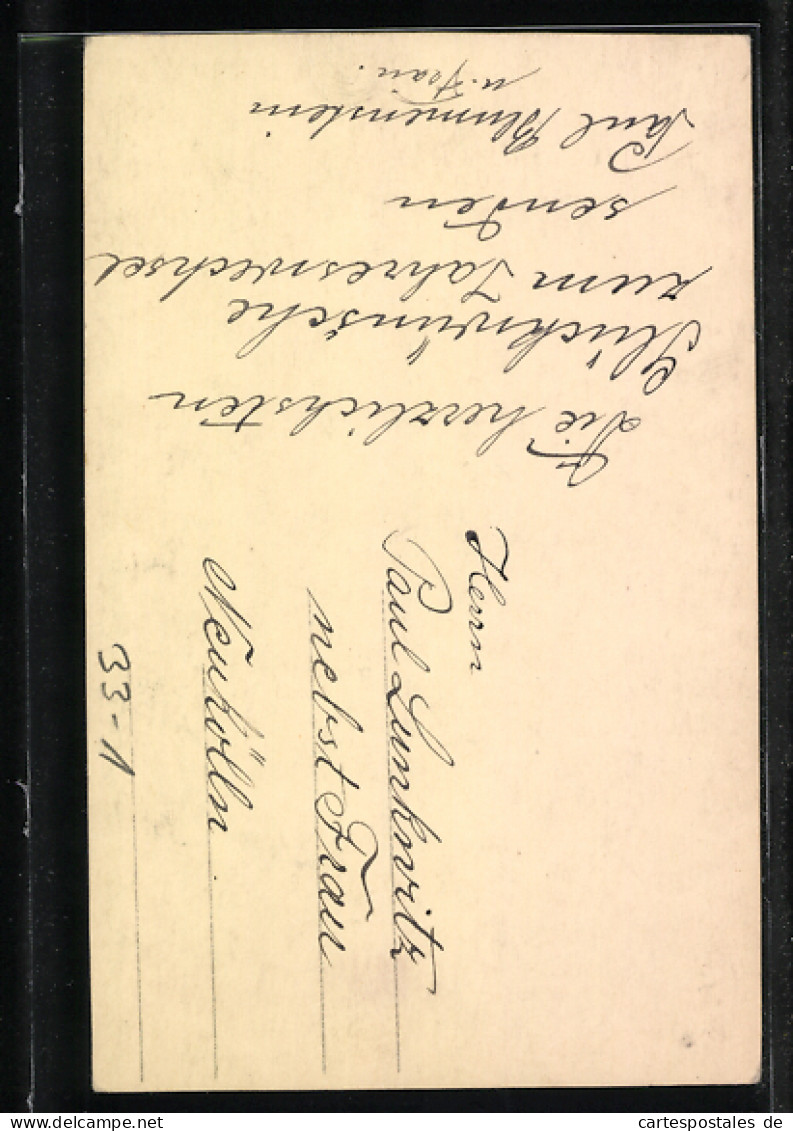 Die herzlichsten
Glückwünsche
zum Jahreswechsel
senden
Paul Blumenstein
u. Frau.
Herrn
Paul Lumkwitz
nebst Frau
Neukölln
33-1
cartespostales de